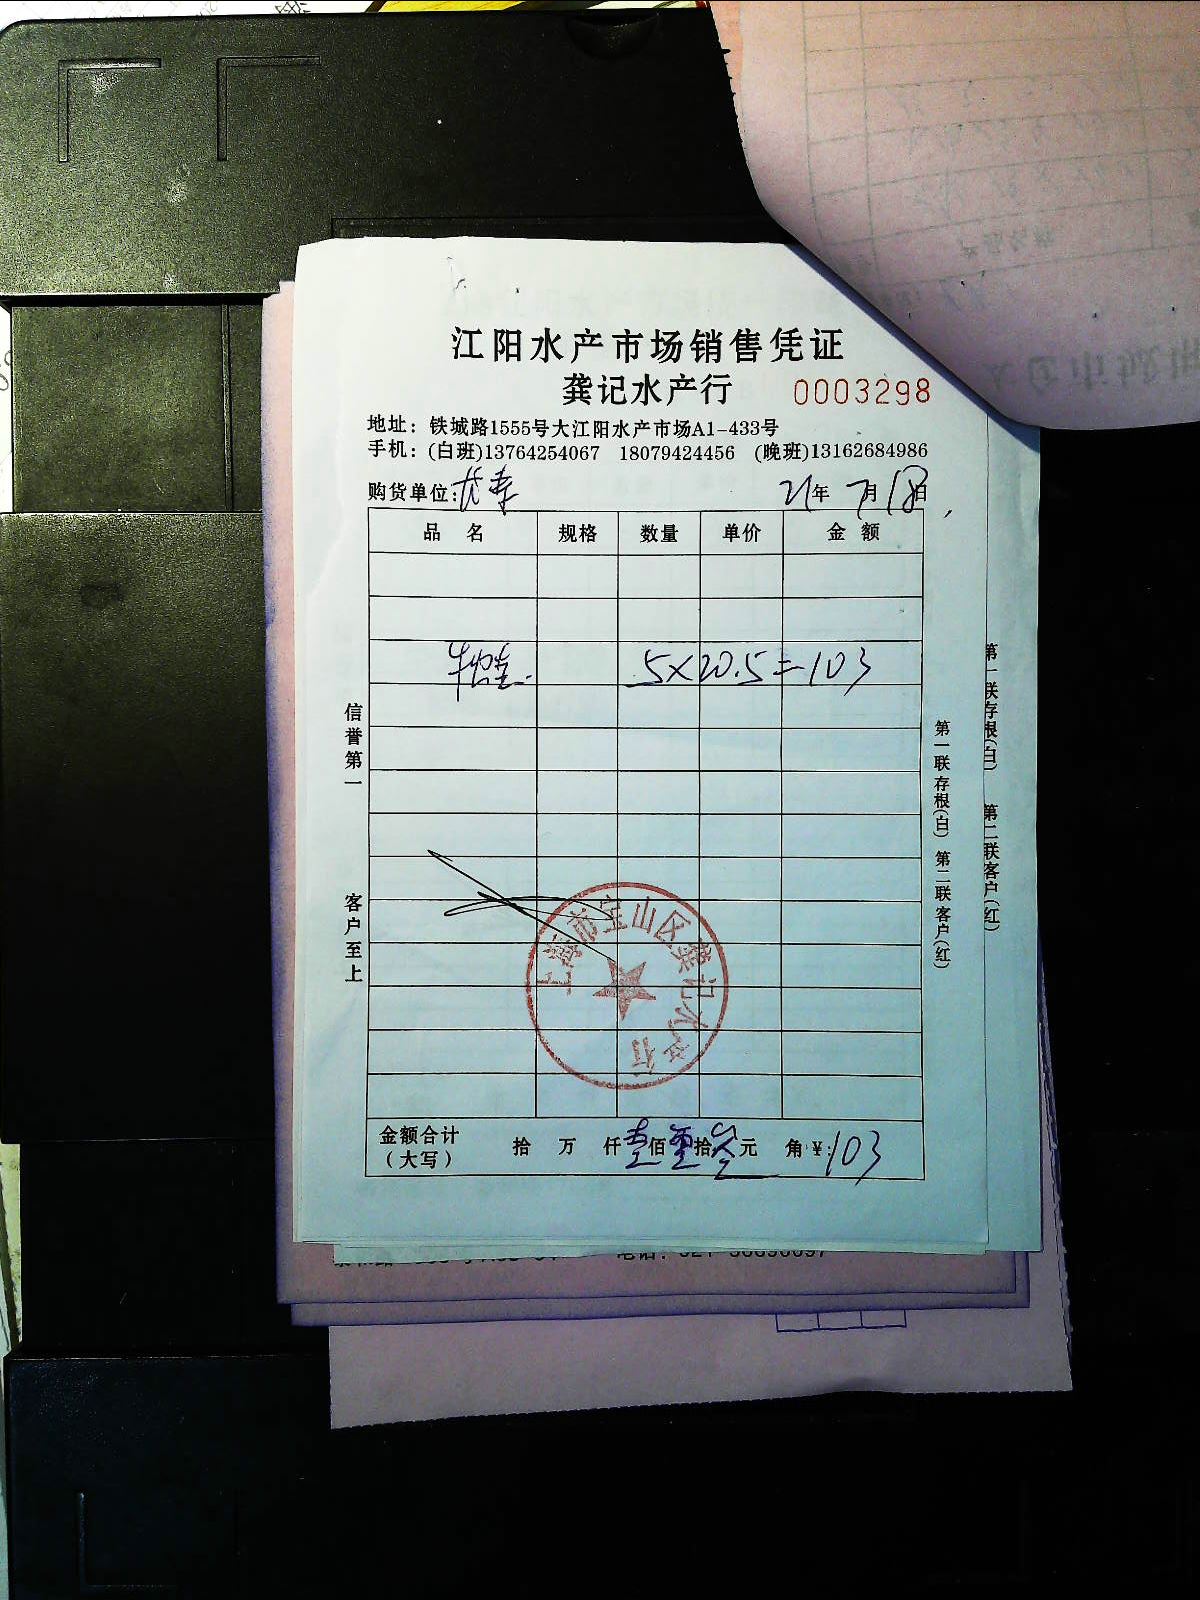 江阳水产市场销售凭证
龚记水产行 0003298
地址：铁城路1555号大江阳水产市场A1-433号
手机：(白班)13764254067 18079424456 (晚班)13162684986
购货单位： 21年 7月18日
品 名 规格 数量 单价 金 额
牛蛙 5×20.5=103
信誉第一 客户至上
第一联存根(白) 第二联客户(红)
第一联存根(白) 第二联客户(红)
上海市宝山区龚记水产行
金额合计(大写) 拾 万 仟 壹佰零拾叁元 角 ¥:103